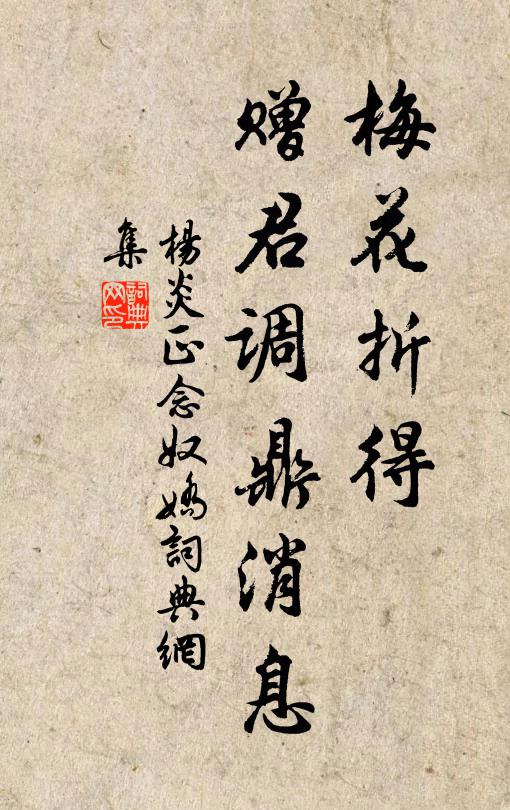 梅花折得
赠君调鼎消息
楊炎正念奴嬌詞典網
集
詞典
网印